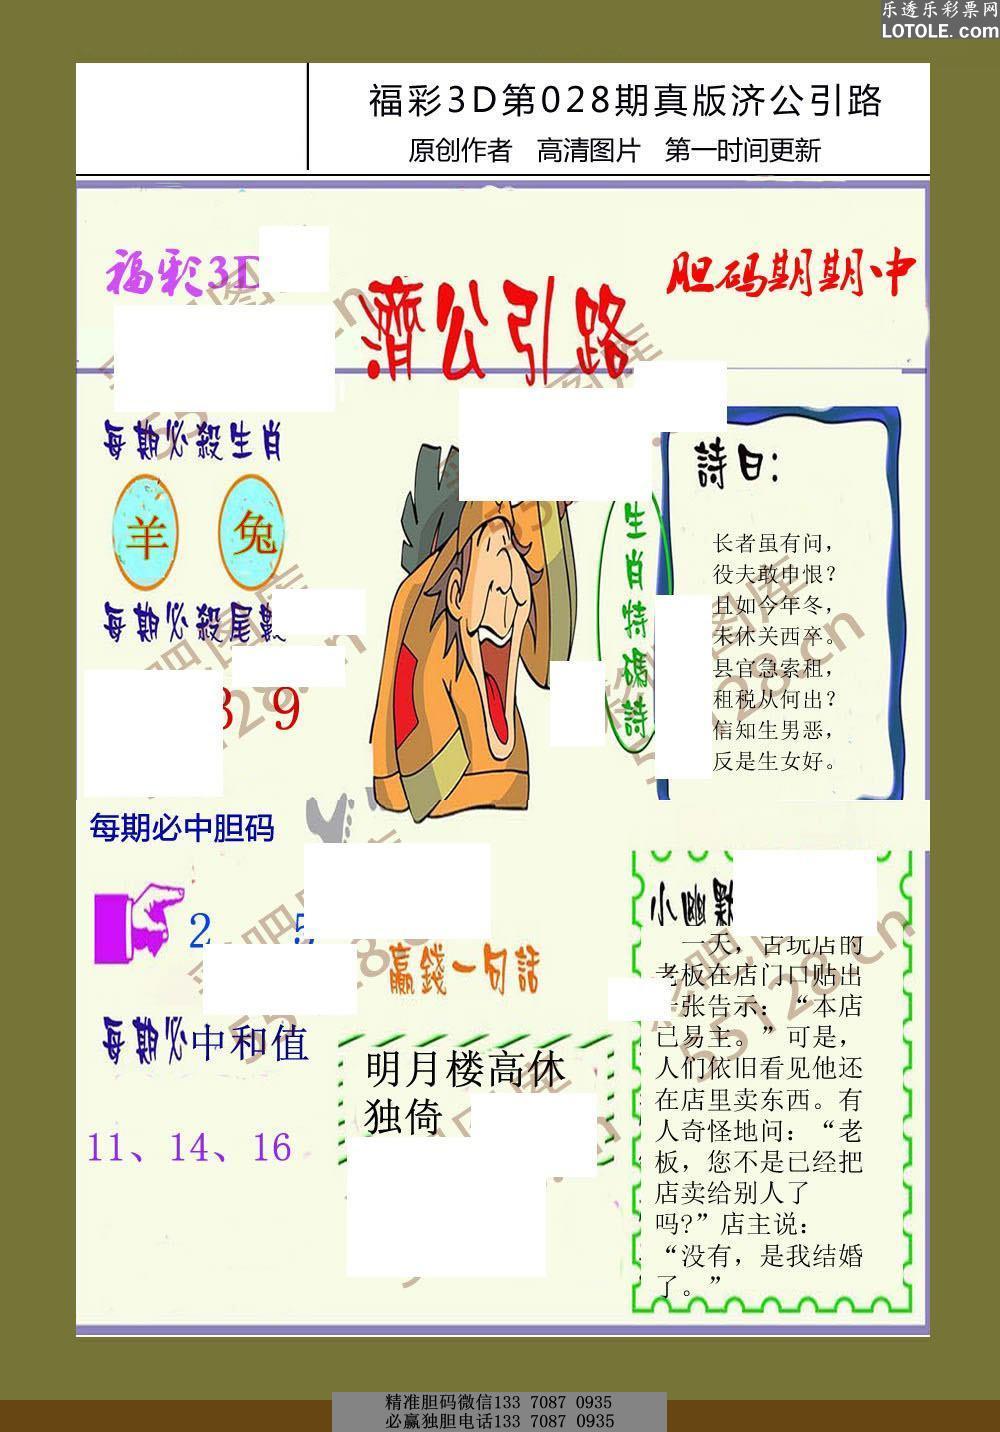 乐透乐彩票网
LOTOLE.com
福彩3D第028期真版济公引路
原创作者 高清图片 第一时间更新
福彩3D
濟公引路
胆码期期中
每期必殺生肖
羊 兔
每期必殺尾
9
每期必中胆码
2
每期必中和值
11、14、16
生肖特碼詩
詩曰:
长者虽有问，
役夫敢申恨？
且如今年冬，
未休关西卒。
县官急索租，
租税从何出？
信知生男恶，
反是生女好。
贏錢一句話
明月楼高休
独倚
小幽默
一天，古玩店的
老板在店门口贴出
一张告示：“本店
已易主。”可是，
人们依旧看见他还
在店里卖东西。有
人奇怪地问：“老
板，您不是已经把
店卖给别人了
吗?”店主说：
“没有，是我结婚
了。”
55128.cn
精准胆码微信133 7087 0935
必赢独胆电话133 7087 0935